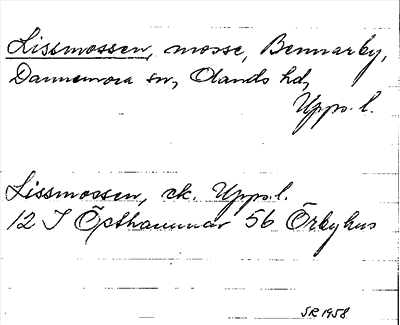 Lissmossen, mosse, Bennarby,
Dannemora sn, Olands hd,
Upps. l.
Lissmossen, ek. Upps. l.
12 I Östhammar 56 Örbyhus
SR 1958